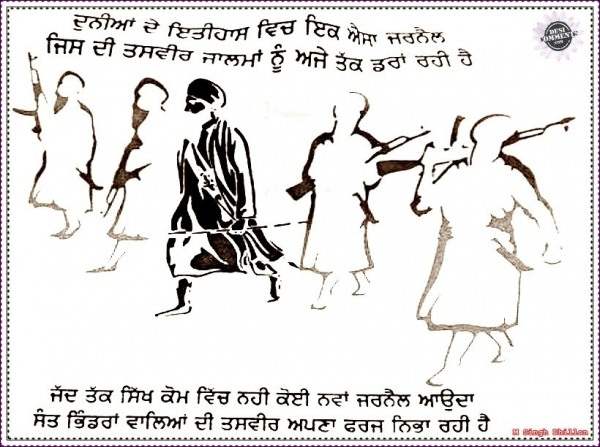 ਦੁਨੀਆਂ ਦੇ ਇਤੀਹਾਸ ਵਿਚ ਇਕ ਐਸਾ ਜਰਨੈਲ
ਜਿਸ ਦੀ ਤਸਵੀਰ ਜਾਲਮਾਂ ਨੂੰ ਅਜੇ ਤੱਕ ਡਰਾਂ ਰਹੀ ਹੈ
DESI
COMMENTS
.com
ਜੱਦ ਤੱਕ ਸਿੱਖ ਕੋਮ ਵਿੱਚ ਨਹੀ ਕੋਈ ਨਵਾਂ ਜਰਨੈਲ ਆਉਦਾ
ਸੰਤ ਭਿੰਡਰਾਂ ਵਾਲਿਆਂ ਦੀ ਤਸਵੀਰ ਅਪਣਾ ਫਰਜ ਨਿਭਾ ਰਹੀ ਹੈ
M Singh Dhillon